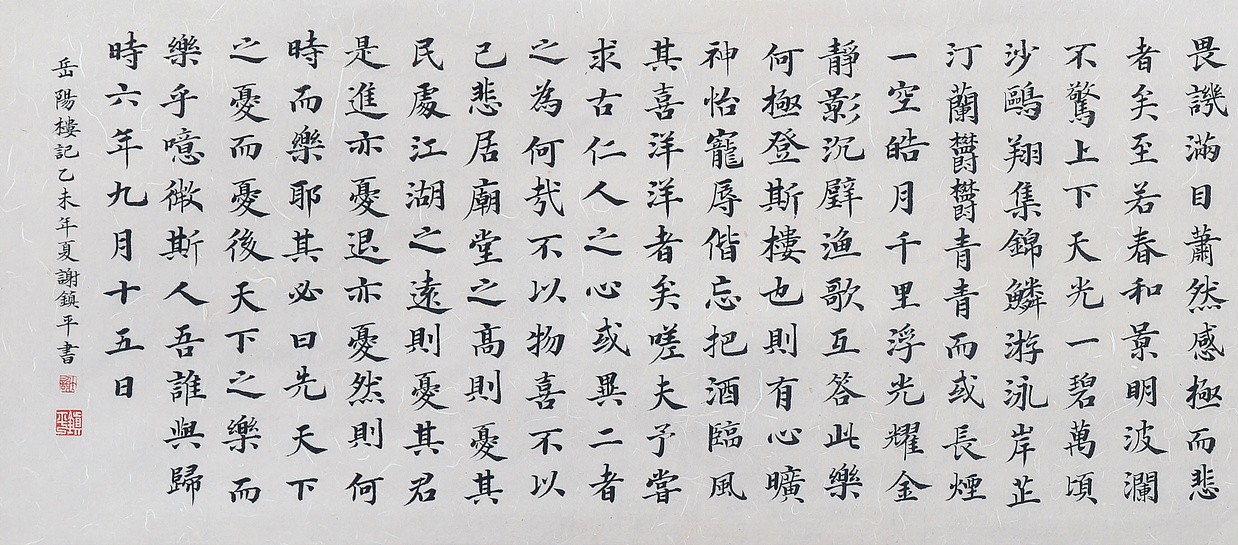 畏譏滿目蕭然感極而悲
者矣至若春和景明波瀾
不驚上下天光一碧萬頃
沙鷗翔集錦鱗游泳岸芷
汀蘭欝欝青青而或長煙
一空皓月千里浮光耀金
靜影沉璧漁歌互答此樂
何極登斯樓也則有心曠
神怡寵辱偕忘把酒臨風
其喜洋洋者矣嗟夫予嘗
求古仁人之心或異二者
之為何哉不以物喜不以
己悲居廟堂之高則憂其
民處江湖之遠則憂其君
是進亦憂退亦憂然則何
時而樂耶其必曰先天下
之憂而憂後天下之樂而
樂乎噫微斯人吾誰與歸
時六年九月十五日
岳陽樓記乙未年夏謝鎮平書